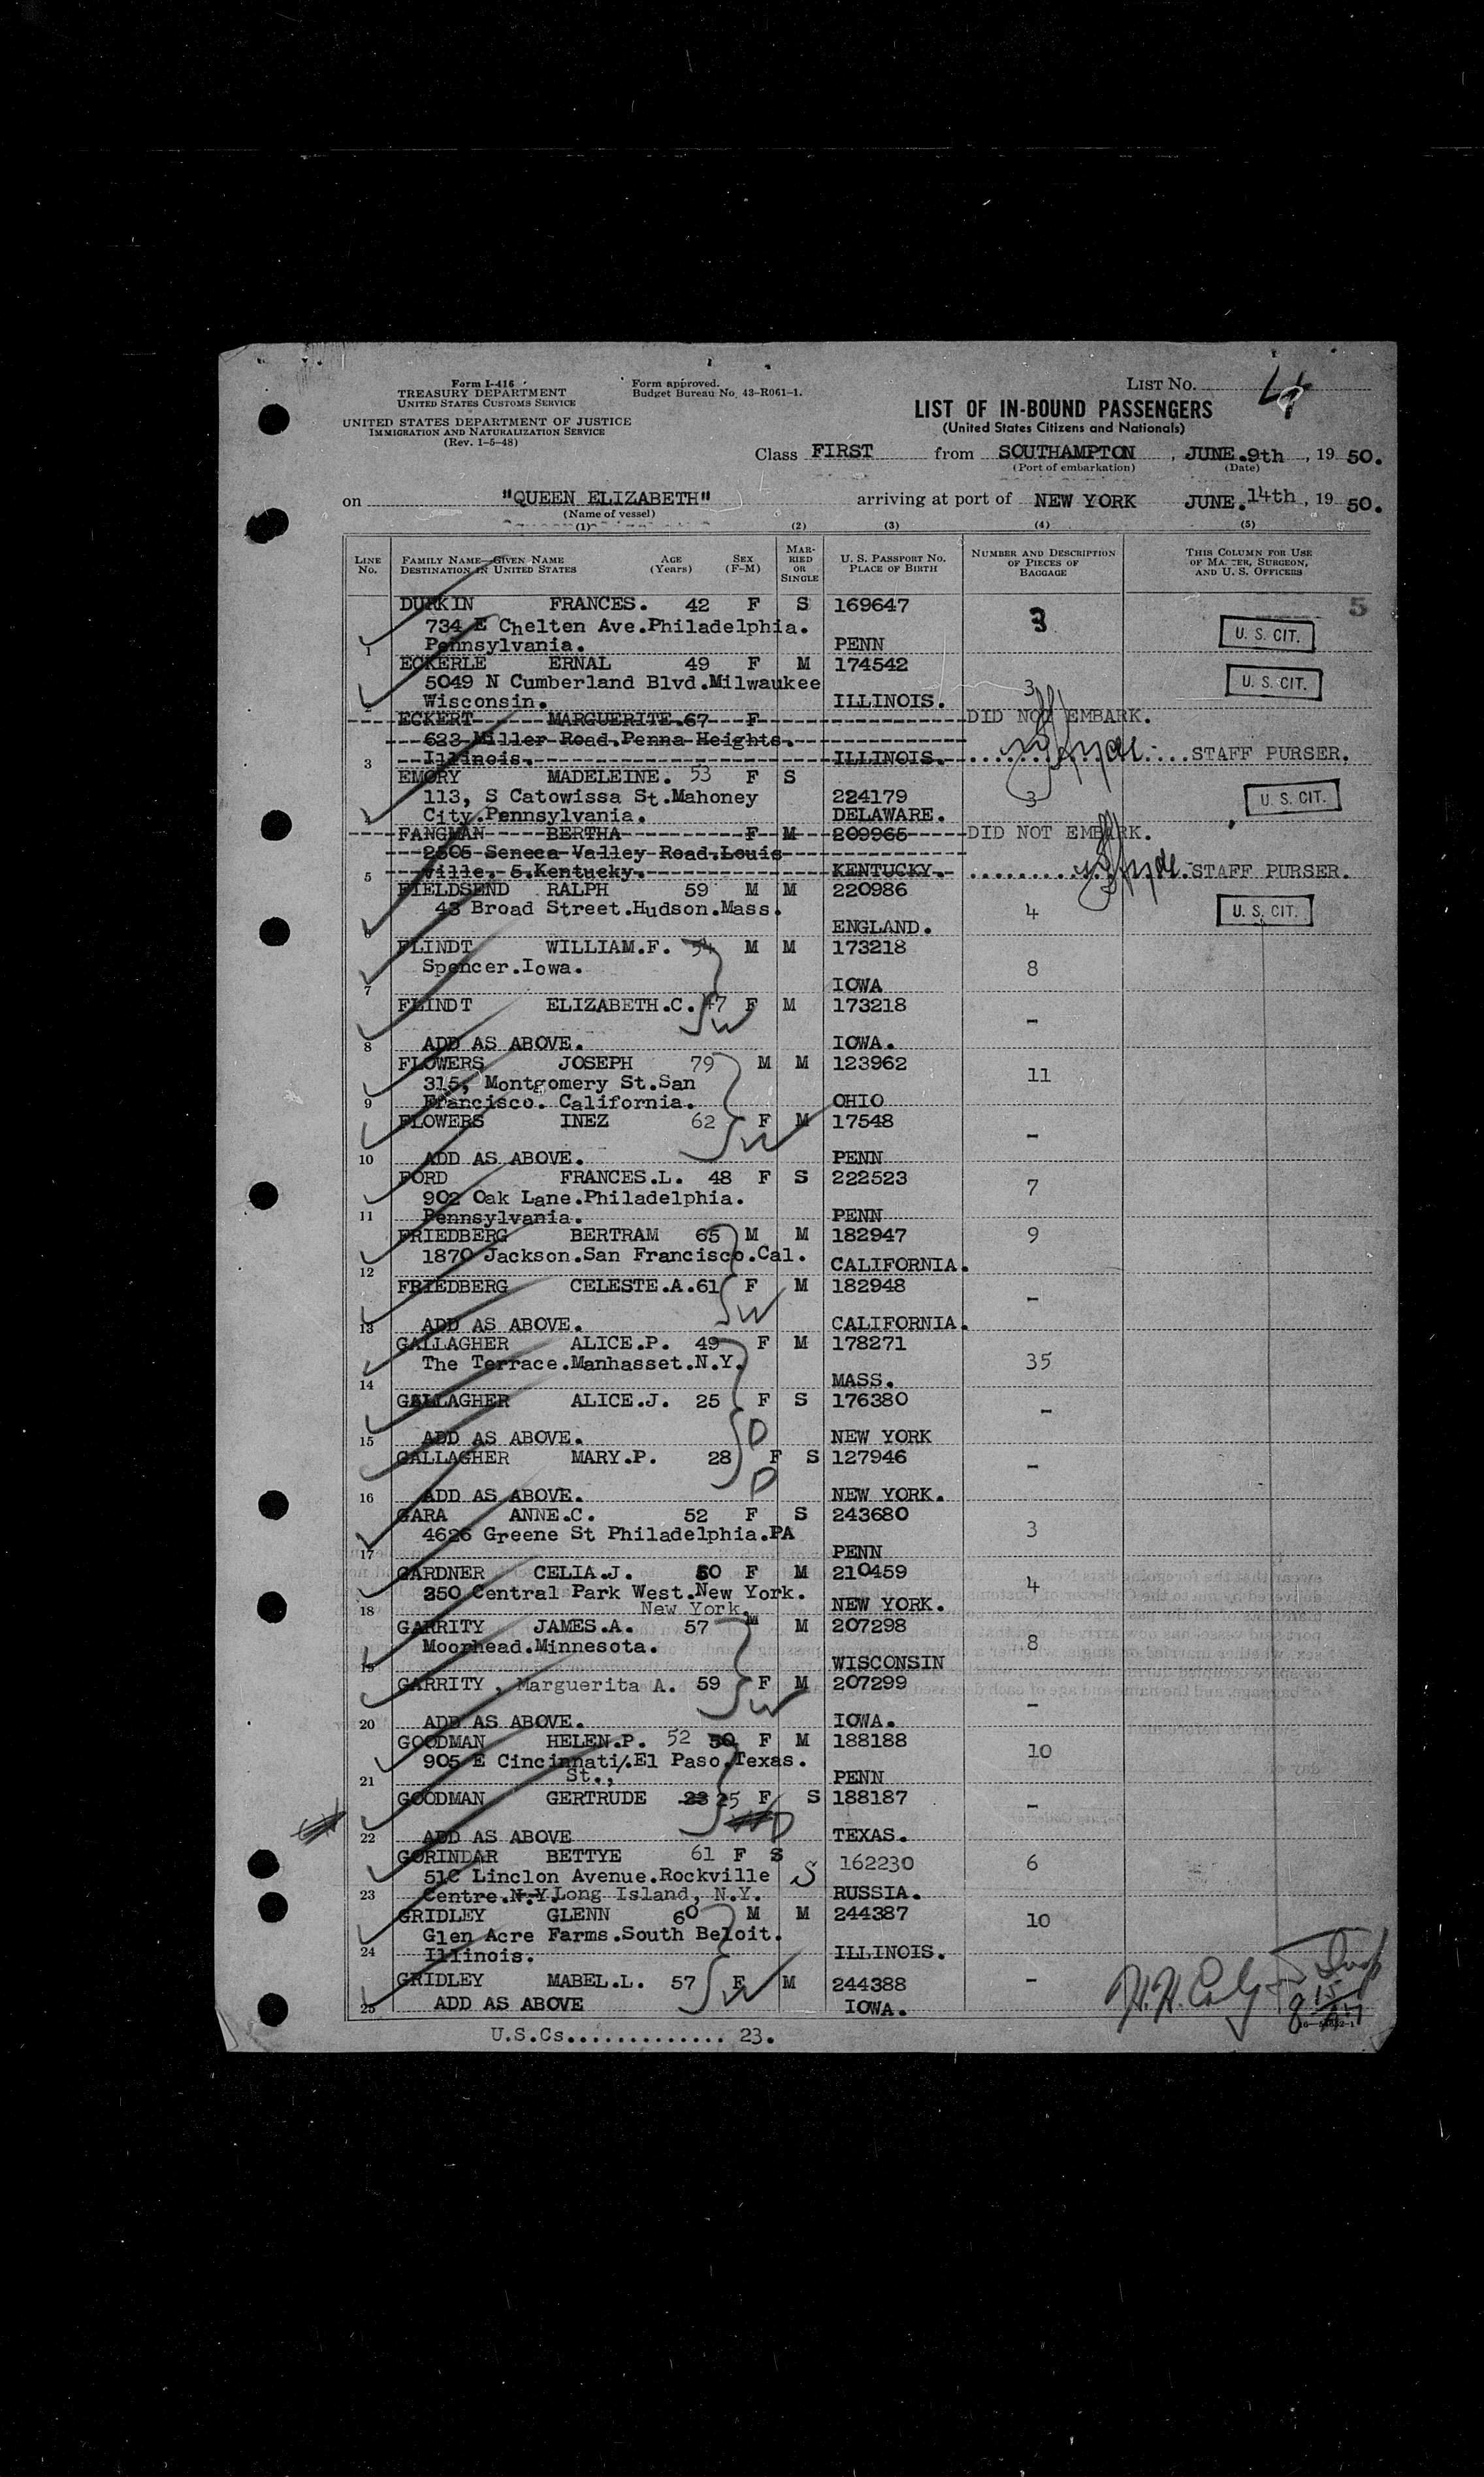 Form I-416
TREASURY DEPARTMENT
UNITED STATES CUSTOMS SERVICE
UNITED STATES DEPARTMENT OF JUSTICE
IMMIGRATION AND NATURALIZATION SERVICE
(Rev. 1-5-48)
Form approved.
Budget Bureau No. 43-R061-1.
LIST NO. 4
LIST OF IN-BOUND PASSENGERS
(United States Citizens and Nationals)
Class FIRST from SOUTHAMPTON, JUNE.9th, 19 50.
(Port of embarkation) (Date)
on "QUEEN ELIZABETH" arriving at port of NEW YORK JUNE.14th, 19 50.
(Name of vessel)
(1) (2) (3) (4) (5)
LINE NO. FAMILY NAME—GIVEN NAME DESTINATION IN UNITED STATES AGE (Years) SEX (F-M) MARRIED OR SINGLE U. S. PASSPORT NO. PLACE OF BIRTH NUMBER AND DESCRIPTION OF PIECES OF BAGGAGE THIS COLUMN FOR USE OF MASTER, SURGEON, AND U. S. OFFICERS
DURKIN FRANCES. 42 F S 169647 3 5
734 E Chelten Ave.Philadelphia. U. S. CIT.
1 Pennsylvania. PENN
ECKERLE ERNAL 49 F M 174542
5049 N Cumberland Blvd.Milwaukee 3 U. S. CIT.
2 Wisconsin. ILLINOIS.
ECKERT MARGUERITE.67 F DID NOT EMBARK.
623 Miller Road.Penna Heights.
3 Illinois. ILLINOIS. STAFF PURSER.
EMORY MADELEINE. 53 F S
113, S Catowissa St.Mahoney 224179 3 U. S. CIT.
City.Pennsylvania. DELAWARE.
FANGMAN BERTHA F M 209965 DID NOT EMBARK.
2505 Seneca Valley Road.Louis
5 ville. 5.Kentucky. KENTUCKY. STAFF PURSER.
FIELDSEND RALPH 59 M M 220986
43 Broad Street.Hudson.Mass. 4 U. S. CIT.
6 ENGLAND.
FLINDT WILLIAM.F. 54 M M 173218
Spencer.Iowa. 8
7 IOWA
FLINDT ELIZABETH.C. 47 F M 173218
W -
8 ADD AS ABOVE. IOWA.
FLOWERS JOSEPH 79 M M 123962
315, Montgomery St.San 11
9 Francisco. California. OHIO
FLOWERS INEZ 62 F M 17548
W -
10 ADD AS ABOVE. PENN
FORD FRANCES.L. 48 F S 222523
902 Oak Lane.Philadelphia. 7
11 Pennsylvania. PENN
FRIEDBERG BERTRAM 65 M M 182947 9
1870 Jackson.San Francisco.Cal.
12 CALIFORNIA.
FRIEDBERG CELESTE.A.61 F M 182948
W -
13 ADD AS ABOVE. CALIFORNIA.
GALLAGHER ALICE.P. 49 F M 178271
The Terrace.Manhasset.N.Y. 35
14 MASS.
GALLAGHER ALICE.J. 25 F S 176380
D -
15 ADD AS ABOVE. NEW YORK
GALLAGHER MARY.P. 28 F S 127946
D -
16 ADD AS ABOVE. NEW YORK.
GARA ANNE.C. 52 F S 243680
4626 Greene St Philadelphia.PA 3
17 PENN
GARDNER CELIA.J. 50 F M 210459
250 Central Park West.New York. 4
18 New York. NEW YORK.
GARRITY JAMES.A. 57 M M 207298
Moorhead.Minnesota. 8
19 WISCONSIN
GARRITY, Marguerita A. 59 F M 207299
W -
20 ADD AS ABOVE. IOWA.
GOODMAN HELEN.P. 52 50 F M 188188
905 E Cincinnati/.El Paso.Texas. 10
21 St., PENN
GOODMAN GERTRUDE 23 25 F S 188187
D -
22 ADD AS ABOVE TEXAS.
GORINDAR BETTYE 61 F S 162230 6
51C Linclon Avenue.Rockville S
23 Centre.N.Y.Long Island, N.Y. RUSSIA.
GRIDLEY GLENN 60 M M 244387
Glen Acre Farms.South Beloit. 10
24 Illinois. ILLINOIS.
GRIDLEY MABEL.L. 57 F M 244388 -
25 ADD AS ABOVE W IOWA.
U.S.Cs............. 23.